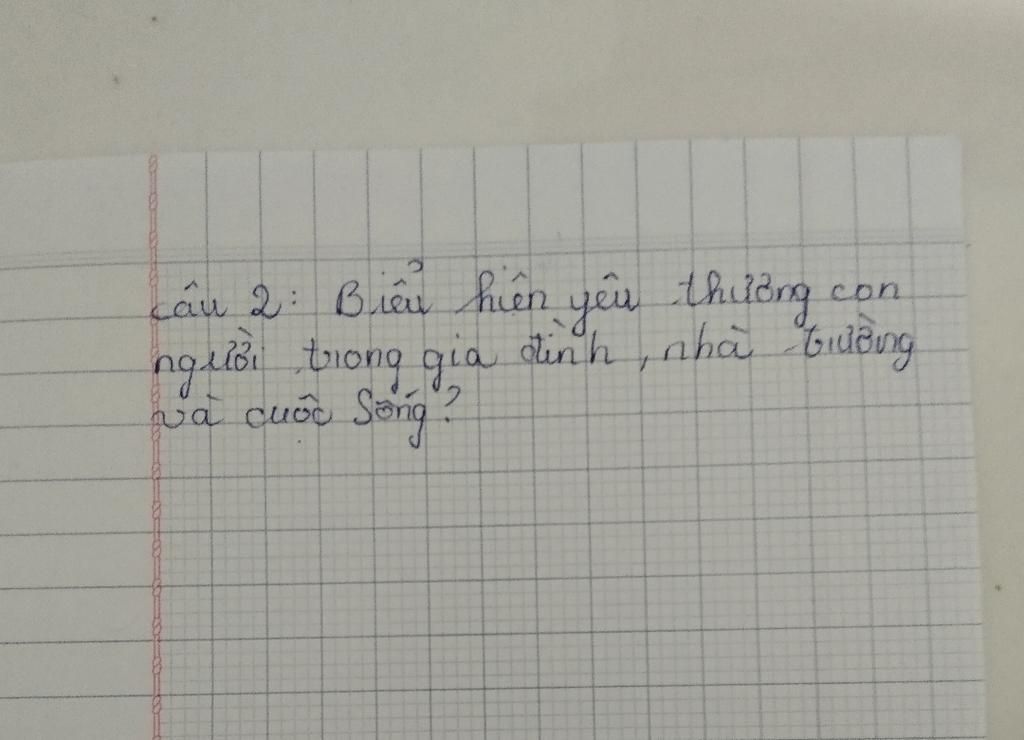 Câu 2: Biểu hiện yêu thương con
người trong gia đình, nhà trường
và cuộc sống?